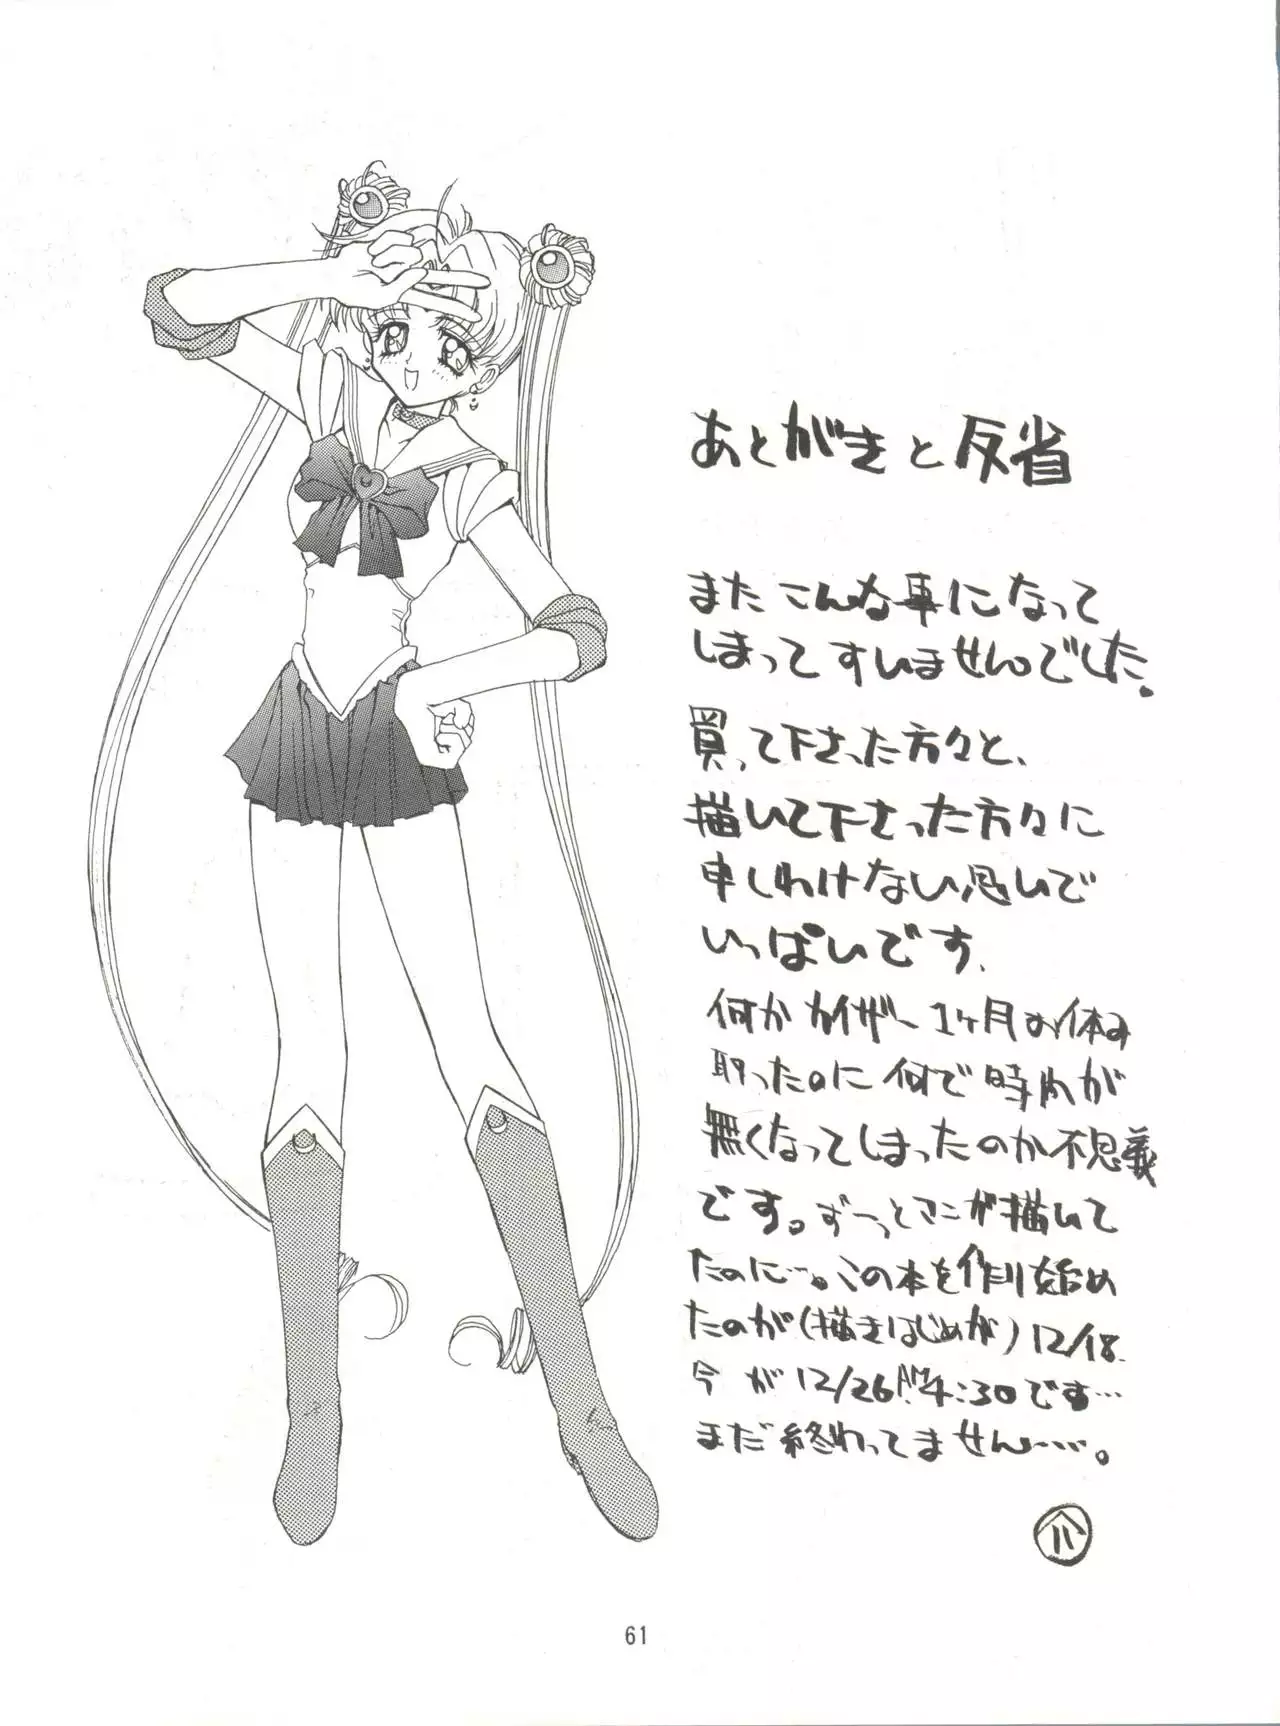 あとがきと反省
またこんな事になって
しまってすいませんでした。
買って下さった方々と、
描いて下さった方々に
申しわけない思いで
いっぱいです、
何かカイザー1ヶ月お休み
取ったのに何で時間が
無くなってしまったのか不思義
です。ずーっとマンガ描いて
たのに…。この本を作り始め
たのが(描きはじめが)12/18.
今が12/26AM4:30です…
まだ終わってません……。
61